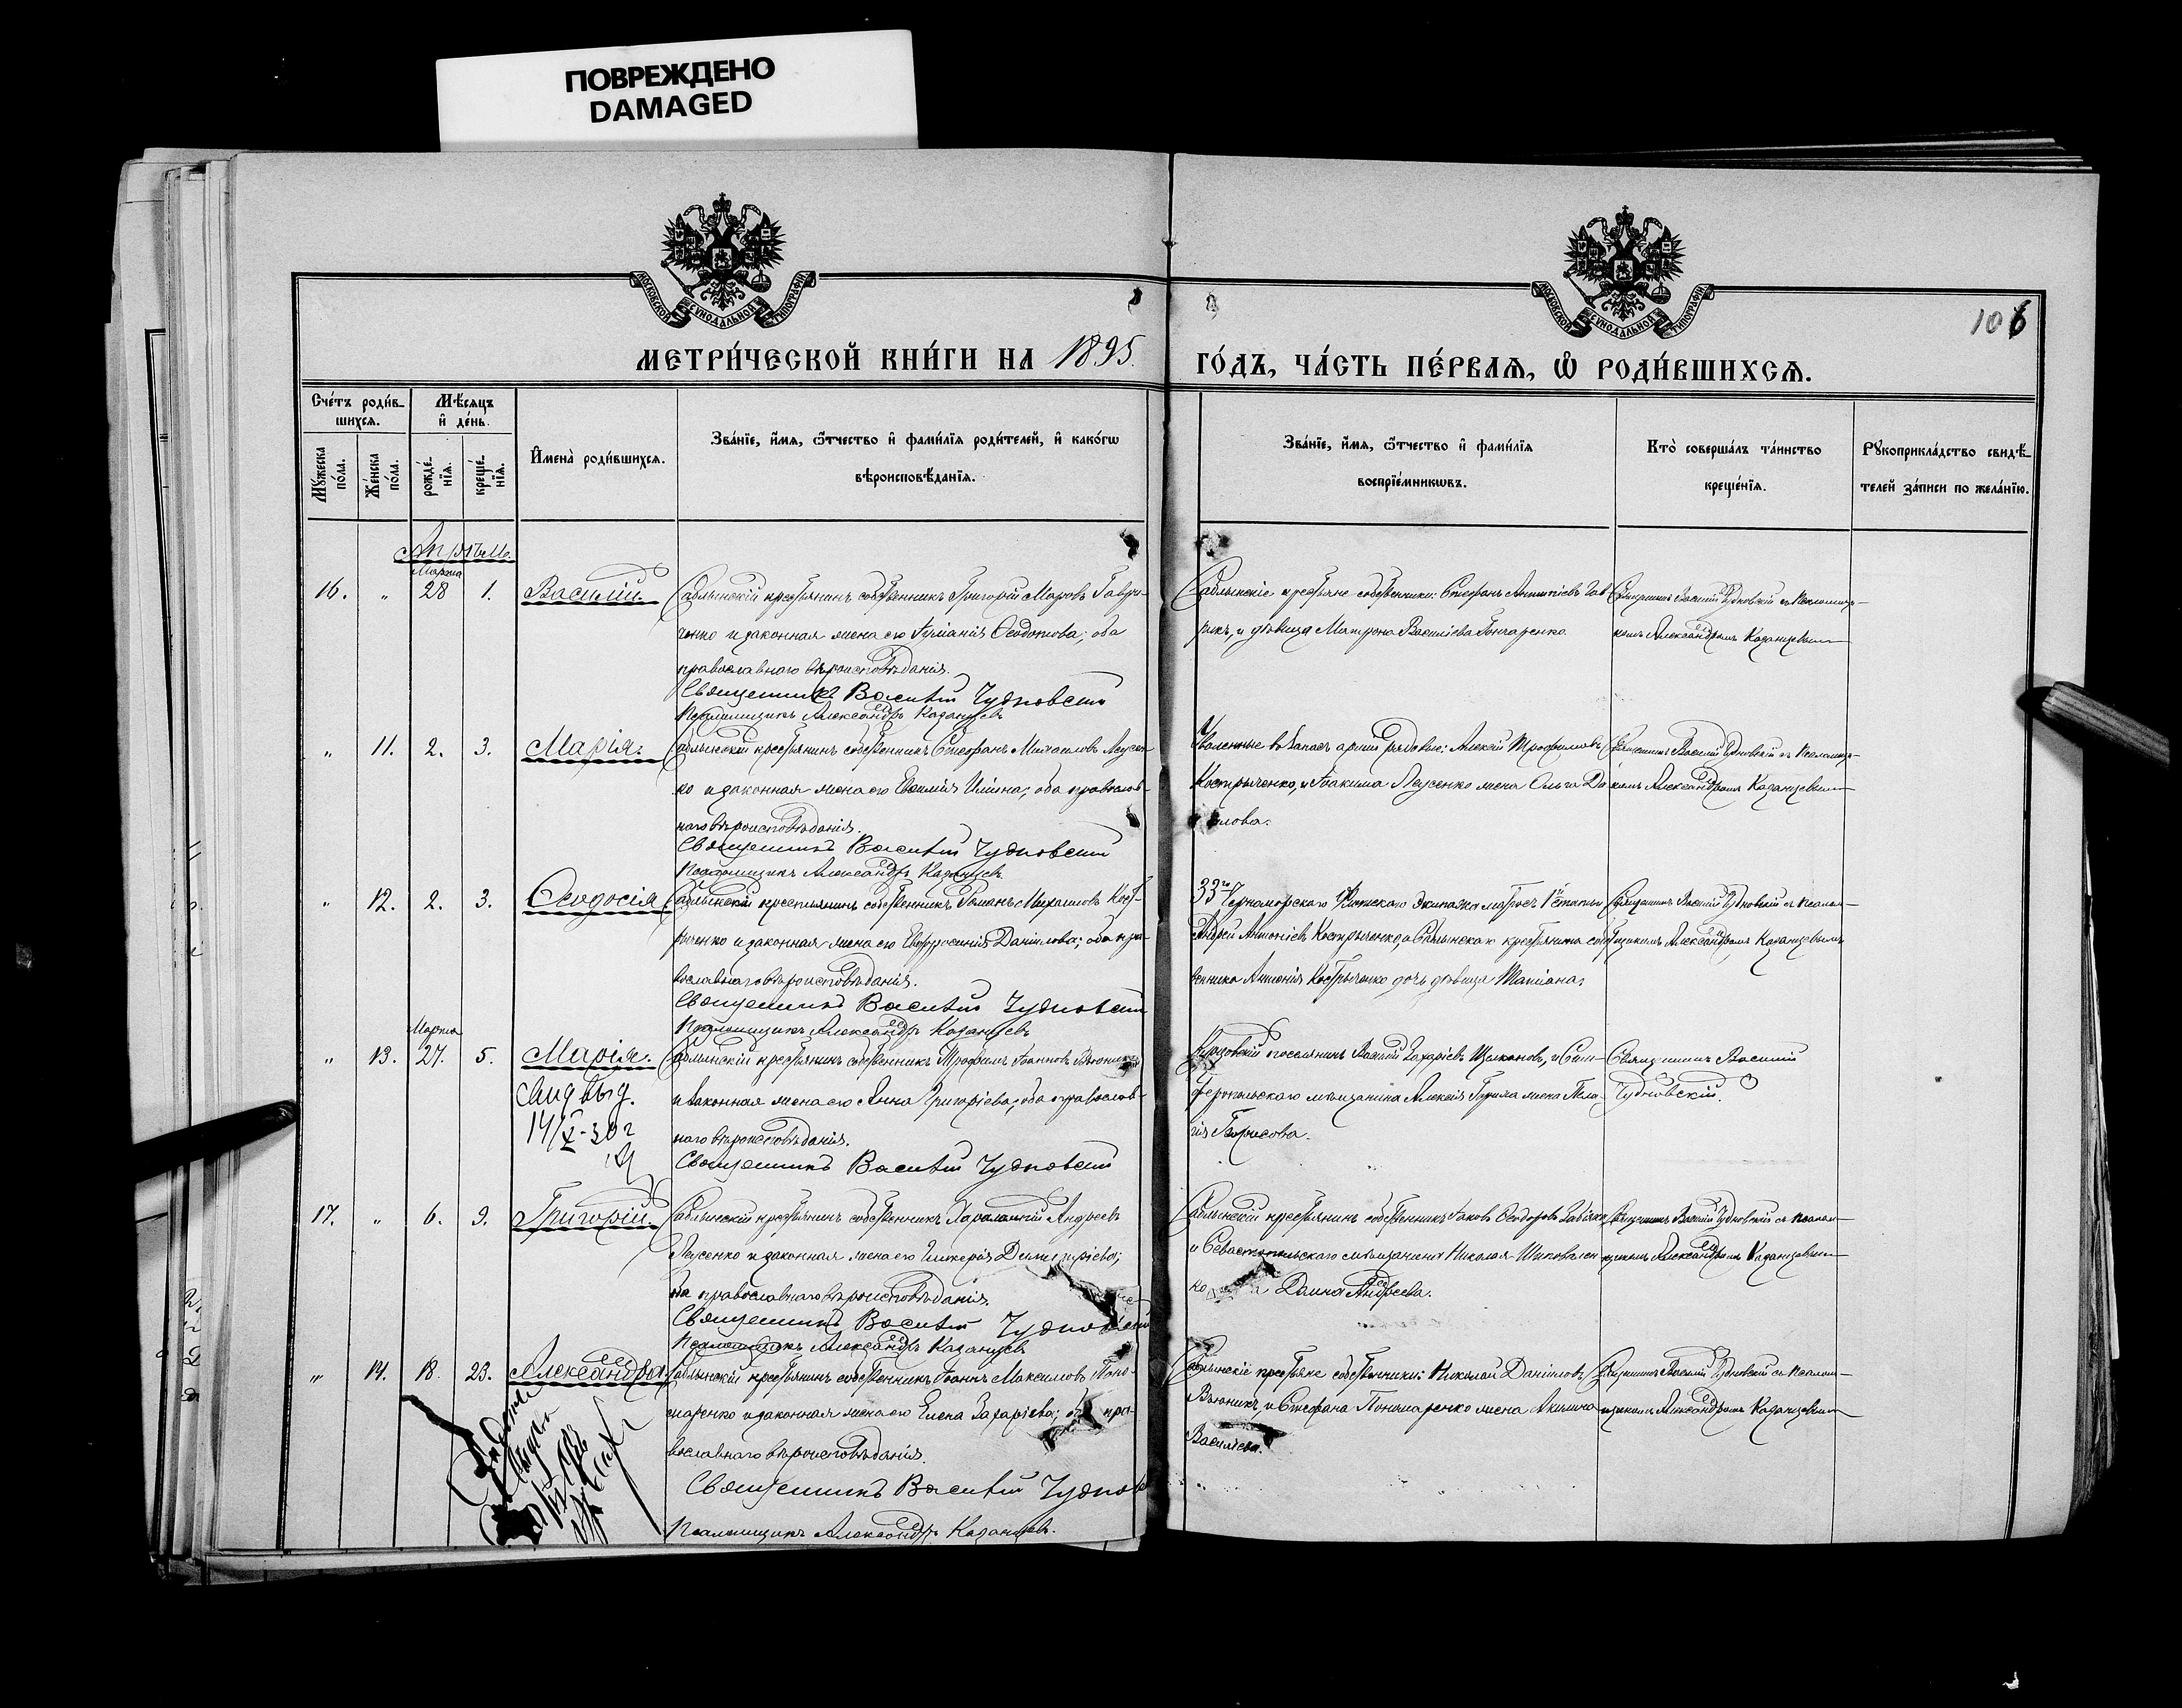 ПОВРЕЖДЕНО
DAMAGED
МОСКОВСКОЙ СУНОДАЛЬНОЙ ТИПОГРАФІИ
МОСКОВСКОЙ СУНОДАЛЬНОЙ ТИПОГРАФІИ
106
МЕТРИ́ЧЕСКОЙ КНИ́ГИ НА 1895.
ГО́ДЪ, ЧА́СТЬ ПЕ́РВАѦ, Ѡ҆ РОДИ́ВШИХСѦ.
Сче́тъ роди́в-
шихся.
Мѣ́сяцъ
и҆ де́нь.
Му́жеска
по́ла.
Же́нска
по́ла.
рожде́-
нїя.
креще́-
нїя.
И҆мена̀ роди́вшихся.
Зва́нїе, и҆́мя, ѻ҆́тчество и҆ фами́лїя роди́телей, и҆ како́гѡ
вѣроисповѣ́данїя.
Зва́нїе, и҆́мя, ѻ҆́тчество и҆ фами́лїя
воспрїе́мникѡвъ.
Кто̀ соверша́лъ та́инство
креще́нїя.
Рꙋкоприкла́дство свидѣ́-
телей за́писи по жела́нїю.
Апрѣль.
Марта
16. " 28 1. Василій.
Саблынскій крестьянинъ собственникъ Григорій Маровъ Гаври-
ченко и законная жена его Іуліанія Ѳеодотова; оба
православнаго вѣроисповѣданія.
Священникъ Василій Чудновскій
Псаломщикъ Александръ Казанцевъ
Саблынскіе крестьяне собственники: Стефанъ
и дѣвица Матрона Васильева Гончаренко.
Священникъ Василій Чудновскій съ Псаломщи-
комъ Александромъ Казанцевымъ
" 11. 2. 3. Марія.
Саблынскій крестьянинъ собственникъ Стефанъ Михаиловъ Леусен-
ко и законная жена его Евфимія Ильина; оба православ-
наго вѣроисповѣданія.
Священникъ Василій Чудновскій
Псаломщикъ Александръ Казанцевъ
Уволенные въ запасъ арміи рядовые: Алексій Трофимовъ
Костырченко, и Іоакима Леусенко жена Ольга Да
илова.
Священникъ Василій Чудновскій съ Псаломщи-
комъ Александромъ Казанцевымъ
" 12. 2. 3. Ѳеодосія.
Саблынскій крестьянинъ собственникъ Романъ Михаиловъ Кост-
рыченко и законная жена его Евфросинія Даніилова; оба пра-
вославнаго вѣроисповѣданія.
Священникъ Василій Чудновскій
Псаломщикъ Александръ Казанцевъ
33го Черноморского Флотскаго Экипажа матросъ 1й статьи
Андрей Антоніевъ Кострыченко, и Саблынскаго крестьянина соб-
ственника Антонія Кострыченко дочь дѣвица Татіана.
Священникъ Василій Чудновскій съ Псалом-
щикомъ Александромъ Казанцевымъ
Марта
" 13. 27. 5. Марія.
Саблынскій крестьянинъ собственникъ Трофимъ Іоанновъ Вьюникъ
и законная жена его Анна Григоріева; оба православ-
наго вѣроисповѣданія.
Священникъ Василій Чудновскій
выд.
14/X-30 г
поселянинъ Василій Захаріевъ и Сим-
феропольскаго мѣщанина Алексія жена Пела-
гія Борисова.
Священникъ Василій
Чудновскій.
17. " 6. 9. Григорій.
Саблынскій крестьянинъ собственникъ Харалампій Андреевъ
Леусенко и законная жена его Гликерія Димитріева;
оба православнаго вѣроисповѣданія.
Священникъ Василій Чудновскій
Псаломщикъ Александръ Казанцевъ
Саблынскій крестьянинъ собственникъ Іаковъ Ѳеодоровъ
и Севастопольскаго мѣщанина Николая Шаповален
ко Андреева.
Священникъ Василій Чудновскій съ Псалом-
щикомъ Александромъ Казанцевымъ
" 14. 18. 23. Александра.
Саблынскій крестьянинъ собственникъ Іоаннъ Максимовъ Поно-
маренко и законная жена его Елена Захаріева; оба пра-
вославнаго вѣроисповѣданія.
Священникъ Василій Чудновскій
Псаломщикъ Александръ Казанцевъ.
Саблынскіе крестьяне собственники: Николай Даніиловъ
Вьюникъ, и Стефана Пономаренко жена Акилина
Васильева.
Священникъ Василій Чудновскій съ Псалом-
щикомъ Александромъ Казанцевымъ